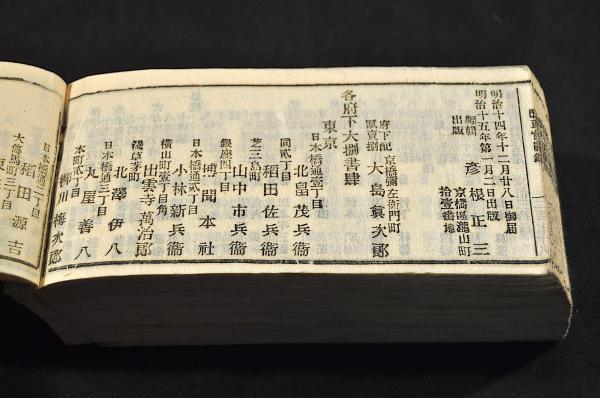 明治十四年十二月廿八日御届
明治十五年第一月二日出版
編輯
出版
彦根正三
京橋區瀧山町
拾壹番地
府下記
賦賣捌
京橋彌左衛門町
大島眞次郎
各府下大捌書肆
東京
日本橋通壹丁目
北畠茂兵衛
同貳丁目
稲田佐兵衛
芝三島町
山中市兵衛
銀座四丁目
博聞本社
日本橋通貳丁目
小林新兵衛
横山町壹丁目角
出雲寺萬治郎
淺草茅町
北澤伊八
日本橋通三丁目
丸屋善八
本町貳丁目
柳川梅次郎
大傳馬町三丁目
稲田源吉
日本橋通二丁目
東